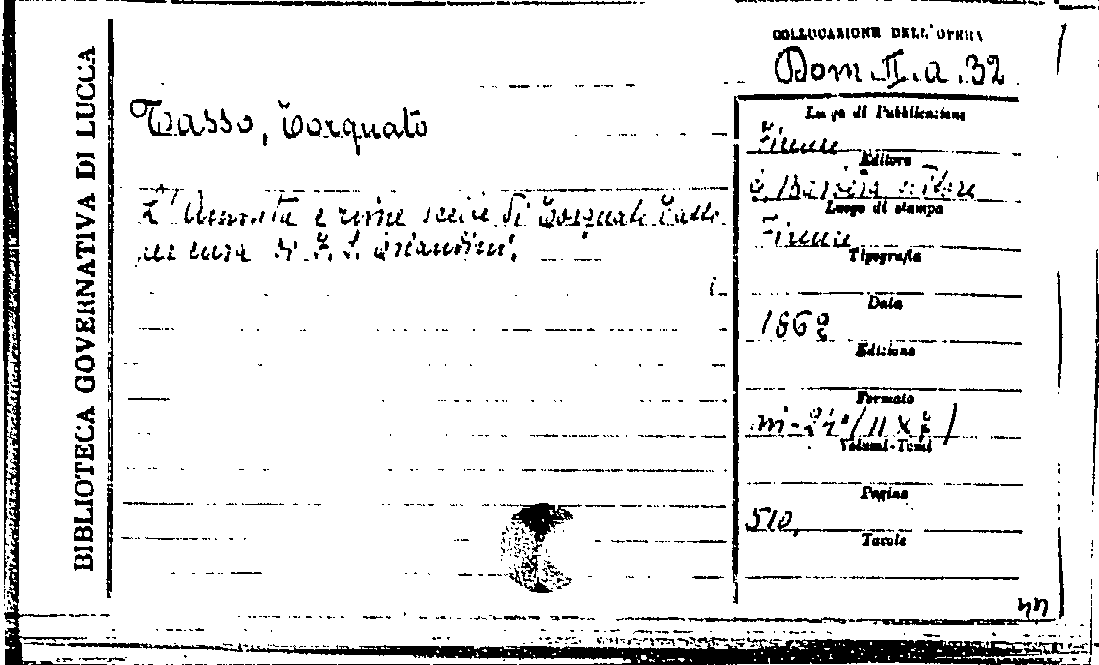 BIBLIOTECA GOVERNATIVA DI LUCCA
COLLOCAZIONE DELL'OPERA
Dom. II. a. 32
Tasso, Torquato
L'Aminta e rime scelte di Torquato Tasso
per cura di F. S. Orlandini.
Luogo di Pubblicazione
Firenze
Editore
G. Barbèra editore
Luogo di stampa
Firenze
Tipografia
Data
1862
Edizione
Formato
in-24° (11 x
Volumi-Tomi
Pagine
510,
Tavole